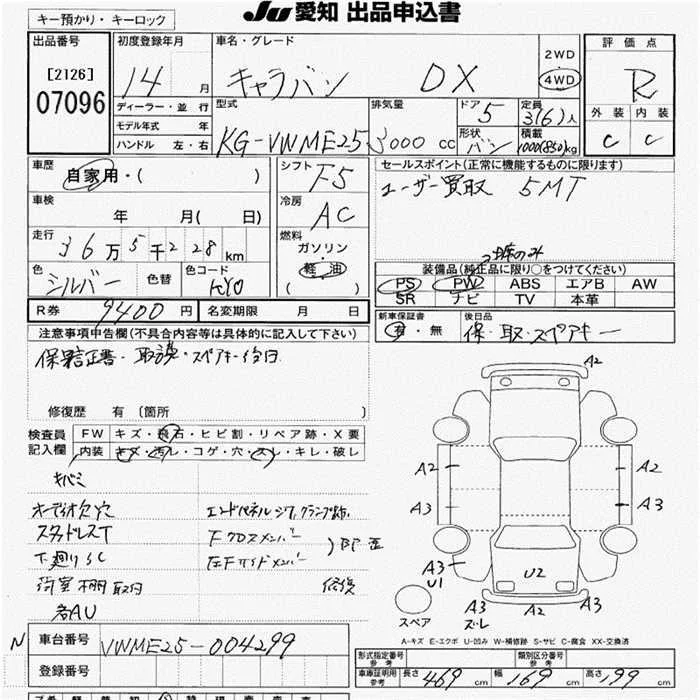 JU 愛知 出品申込書
キー預かり・キーロック
出品番号
[2126]
07096
初度登録年月
14 月
ディーラー・並 行
モデル年式 年
ハンドル 左・右
車名・グレード
キャラバン DX
2WD
4WD
型式
KG-VWME25
排気量
3000 cc
ドア
5
形状
バン
定員
3(6)人
積載
1000(850)kg
評価点
R
外装 内装
C C
車歴
自家用・( )
車検
年 月( 日)
走行
36万5千228km
色
シルバー
色替
色コード
KY0
シフト
F5
冷房
AC
燃料
ガソリン・
軽油
( )
R券 9400 円
名変期限 月 日
セールスポイント(正常に機能するものに限ります)
ユーザー買取 5MT
装備品(純正品に限り○をつけてください)
PS PW ABS エアB AW
SR ナビ TV 本革
新車保証書
有・無
後日品
保・取・スペアキー
注意事項申告欄(不具合内容等は具体的に記入して下さい)
保証書・取説・スペアキー後日
修復歴 有 (箇所 )
検査員
記入欄
FW キズ・飛石・ヒビ割・リペア跡・X要
内装 キズ・汚レ・コゲ・穴・スレ・キレ・破レ
キバミ
オーディオ欠穴
スタッドレスT
下廻りSC
荷室棚取付
エンドパネル
Fクロスメンバー
左Fサイドメンバー
修復
A2
A2 A2
A3 A3
A3
U1
U2
A3
スレ
A2
A3
スペア
A-キズ E-エクボ U-凹み W-補修跡 S-サビ C-腐食 XX-交換済
N
車台番号 VWME25-004299
登録番号
形式指定番号
参考
類別区分番号
参考
車庫証明用
参考
長さ 469 cm 幅 169 cm 高さ 199 cm